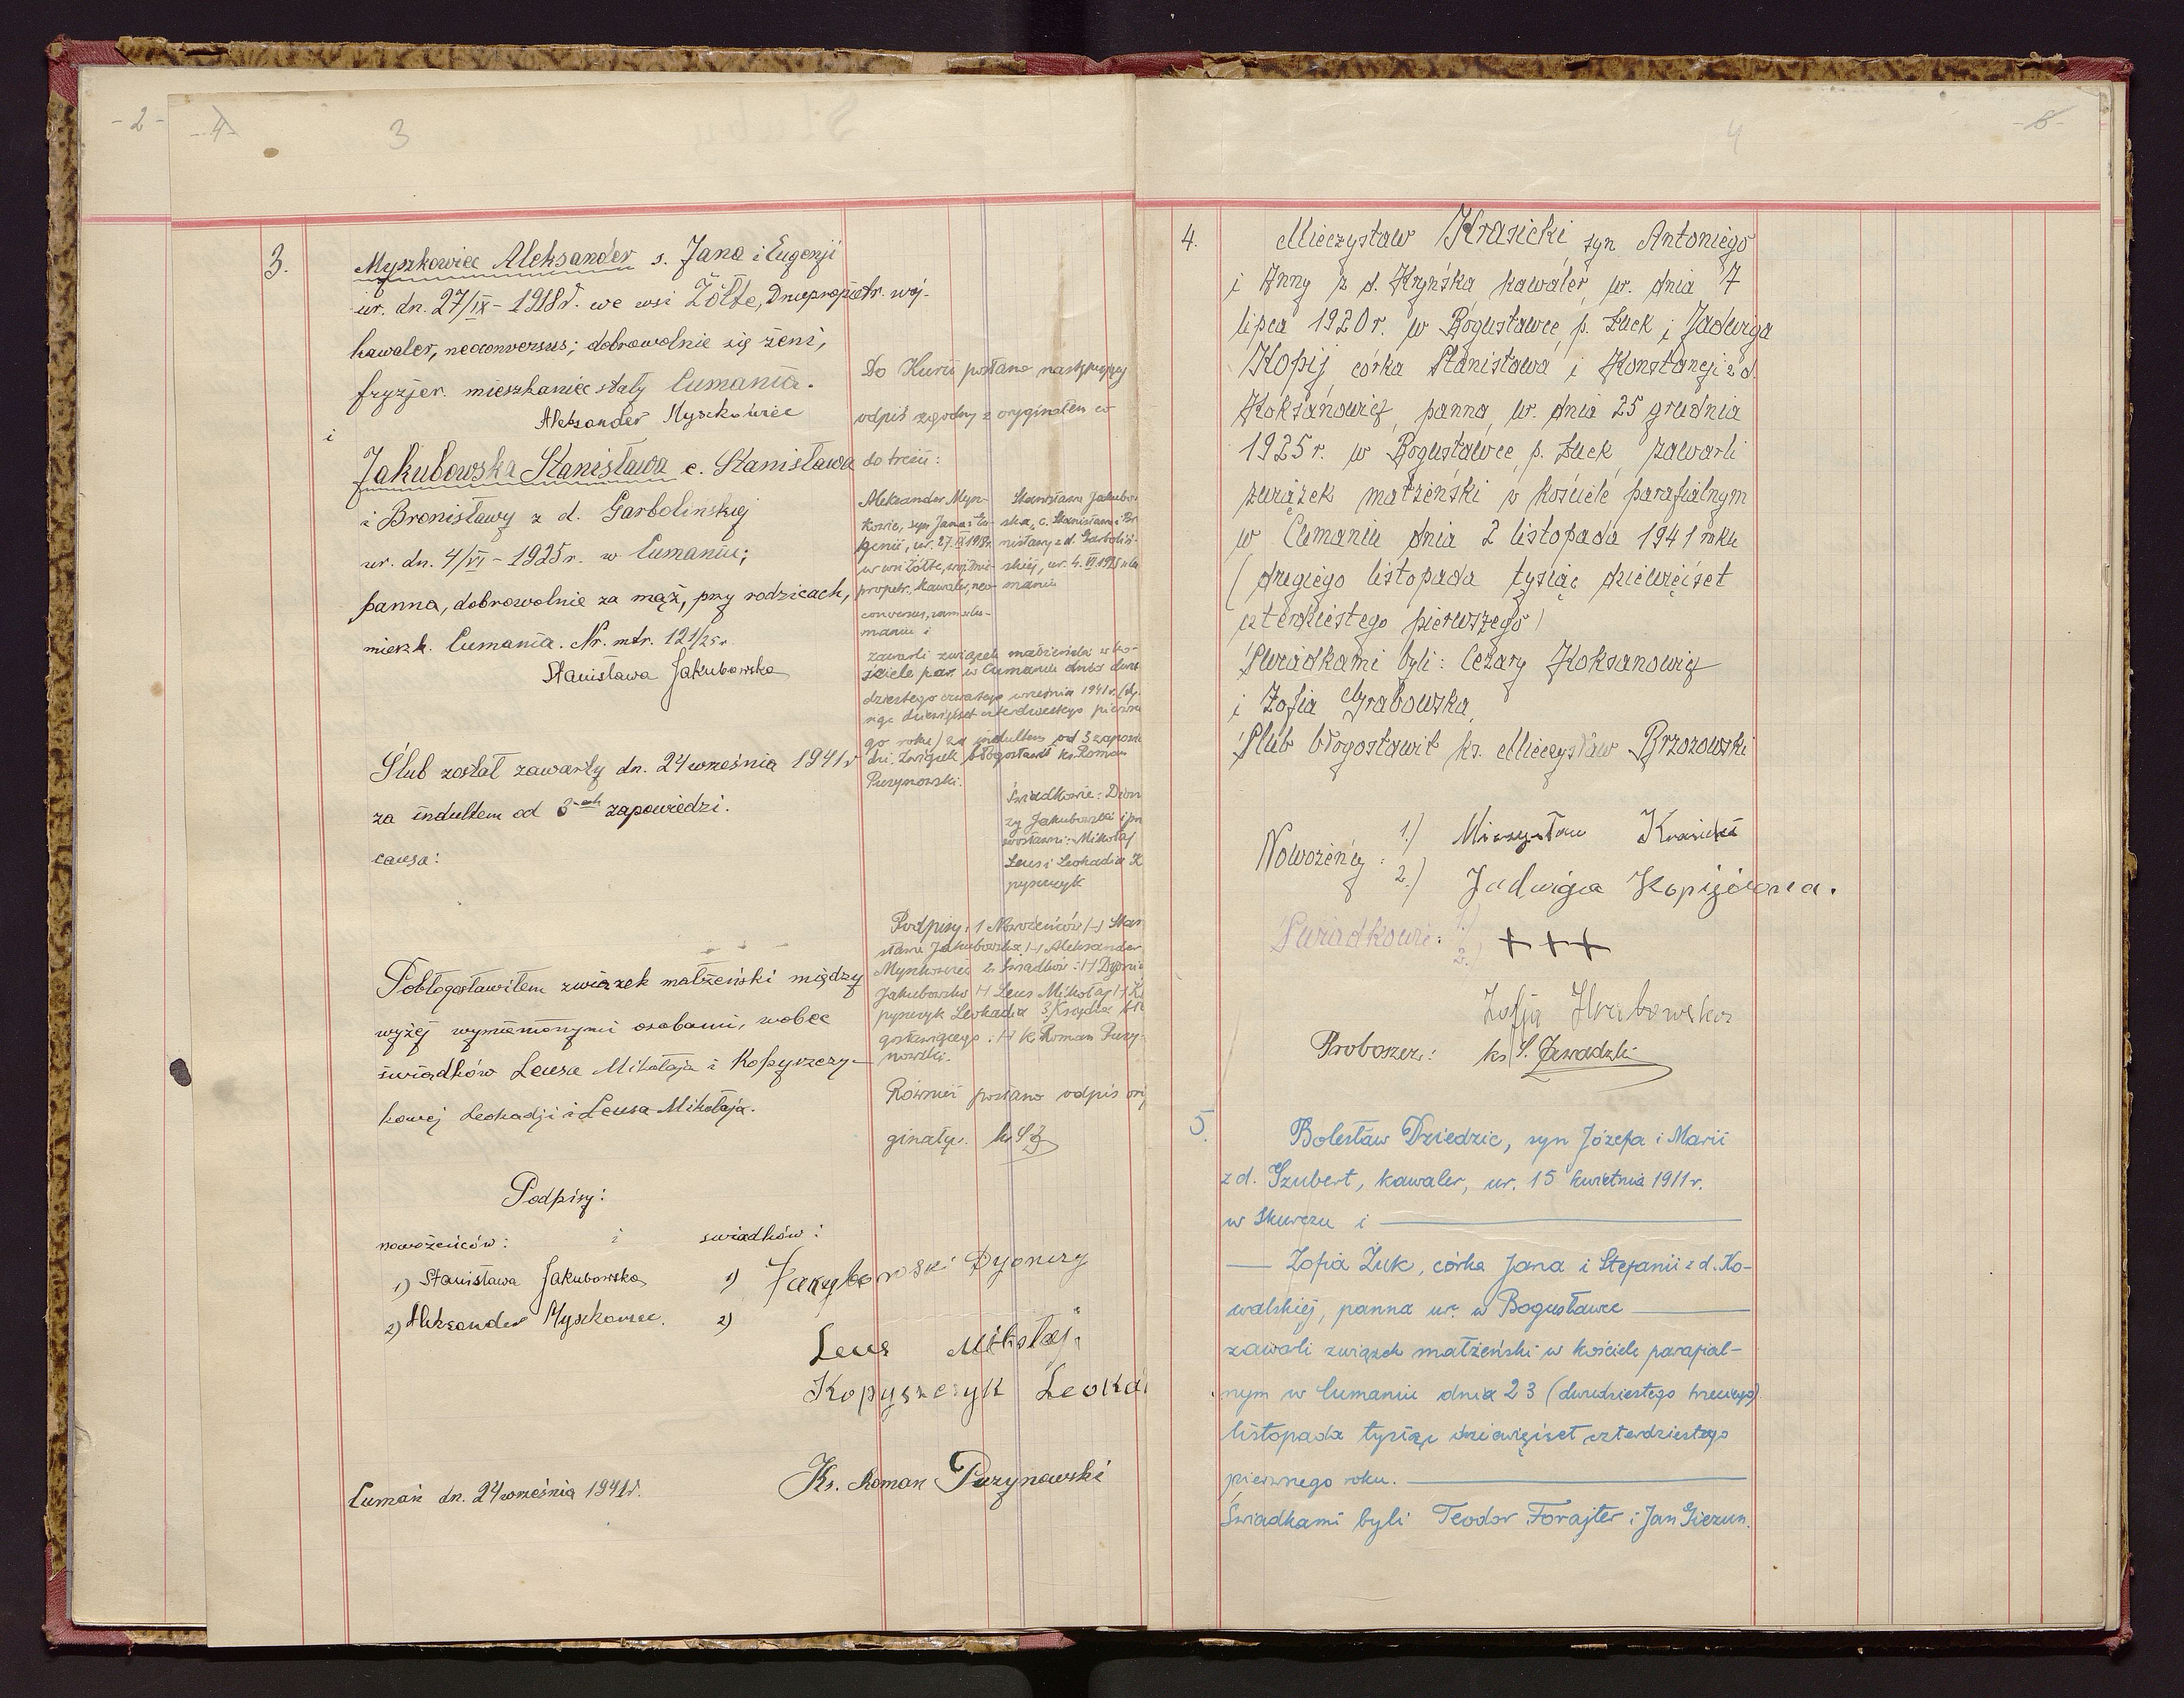 - 2 -
- 4 -
3
3.
Myszkowiec Aleksander s. Jana i Eugenji
ur. dn. 27/IX - 1918 r. we wsi Żółte, Dniepropietr. woj.
kawaler, neoconversus; dobrowolnie się żeni,
fryzjer. mieszkaniec stały Cumania.
Aleksander Myszkowiec
i
Jakubowska Stanisława c. Stanisława
i Bronisławy z d. Garbolińskiej
ur. dn. 4/VI - 1925 r. w Cumaniu;
panna, dobrowolnie za mąż, przy rodzicach,
mieszk. Cumania. Nr. mtr. 121/25 r.
Stanisława Jakubowska
Ślub został zawarty dn. 24 września 1941 r
za indultem od 3-ech zapowiedzi.
causa:
Pobłogosławiłem związek małżeński między
wyżej wymienionymi osobami, wobec
świadków Leusa Mikołaja i Kopyszczy-
kowej Leokadji i Leusa Mikołaja.
Podpisy:
nowożeńców: i swiadków:
1) Stanisława Jakubowska 1) Jakybowski Dyonizy
2) Aleksander Myszkowiec. 2)
Leus Mikołaj
Kopyszczyk Leoka
Cumań dn. 24 września 1941 r. Ks. Roman Puzynowski
Do Kurii posłano następujący
odpis zgodny z oryginałem co
do treści:
Aleksander Mysz-
kowiec, syn Jana i Eu-
genii, ur. 27.IX 1918 r.
we wsi Żółte, woj. Dnie-
propetr. kawaler, neo-
conversus, zam. w Cu-
maniu i
Stanisława Jakubow
ska, c. Stanisława i Br
nisławy z d. Garboliń-
skiej, ur. 4. VI 1925 w Cu
maniu
zawarli związek małżeński w ko-
ściele par. w Cumaniu dnia dwu
dziestego czwartego września 1941 r. (ty-
siąc dziewięćset czterdziestego pierwsze
go roku) za indultem od 3 zapowie
dzi. Związek błogosławił ks. Roman
Puzynowski.
Świadkowie: Dion
zy Jakubowski i
Mikołaj
Leus i Leokadia K
pyszczyk
Podpisy: 1 Nowożeńców (-) Stan
sława Jakubowska (-) Aleksander
Myszkowiec 2. Świadków: (-) Dyoni
Jakubowski (-) Leus Mikołaj (-) Ko
pyszczyk Leokadia 3) Księdza bło
gosławiącego: (-) Ks Roman Puzy-
nowski.
Również posłano odpis ory
ginału. ks S Z
4
- 6 -
4.
Mieczysław Krasicki syn Antoniego
i Anny z d. Kryńska kawaler, ur. dnia 7
lipca 1920 r. w Bogusławce, p. Łuck i Jadwiga
Kopij córka Stanisława i Konstancji z d.
Koksanowicz, panna, ur. dnia 25 grudnia
1925 r. w Bogusławce, p. Łuck, zawarli
związek małżeński w kościele parafialnym
w Cumaniu dnia 2 listopada 1941 roku
(drugiego listopada tysiąc dziewięćset
czterdziestego pierwszego)
Świadkami byli: Cezary Koksanowicz
i Zofia Grabowska
Ślub błogosławił ks. Mieczysław Brzozowski
Nowożeńcy: 1.) Mieczysław Krasicki
2.) Jadwiga Kopijówna.
Świadkowie: 1.)
2.) + + +
Zofja Hrabowska
Proboszcz: ks. S. Zawadzki
5.
Bolesław Dziedzic, syn Józefa i Marii
z d. Szubert, kawaler, ur. 15 kwietnia 1911 r.
w Skurczu i
Zofia Żuk, córka Jana i Stefanii z d. Ko-
walskiej, panna ur. w Bogusławce
zawarli związek małżeński w kościele parafial-
nym w Cumaniu dnia 23 (dwudziestego trzeciego)
listopada tysiąc dziewięćset czterdziestego
pierwszego roku.
Świadkami byli Teodor Forajter i Jan Giezun.